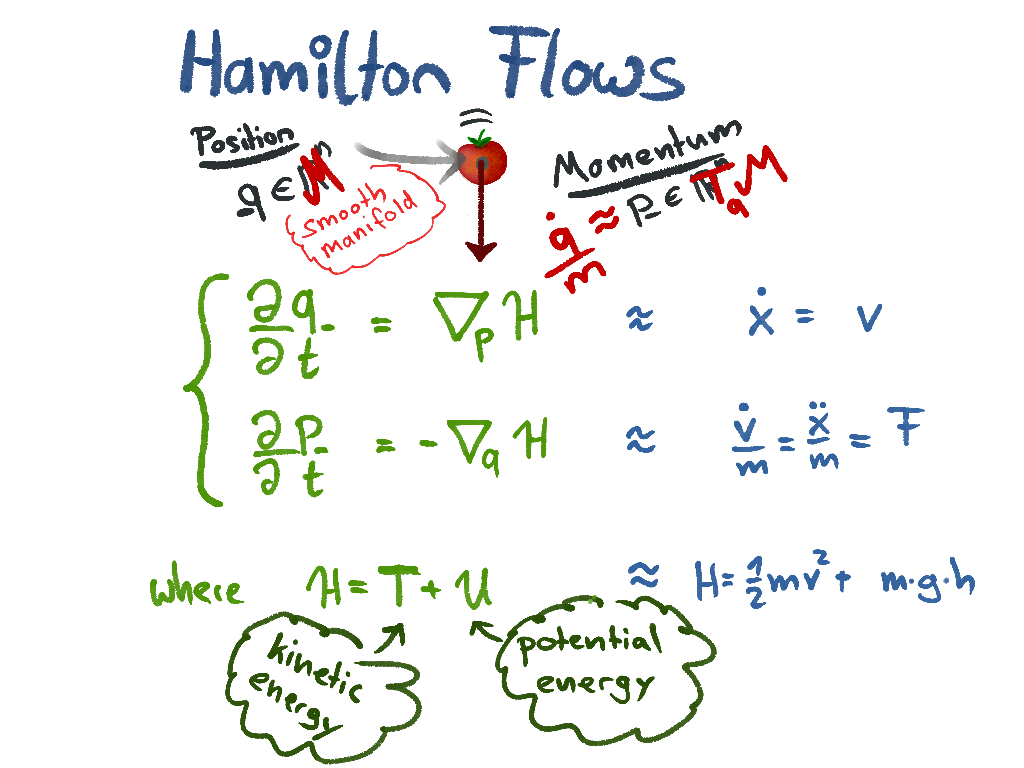 Hamilton Flows
Position
q ∈ ℝⁿ M
smooth
manifold
Momentum
q̇/m ≈ p ∈ ℝⁿ T_q M
∂q/∂t = ∇_p H ≈ ẋ = v
∂p/∂t = - ∇_q H ≈ v̇/m = ẍ/m = F
where H = T + U ≈ H = 1/2 mv² + m·g·h
kinetic
energy
potential
energy